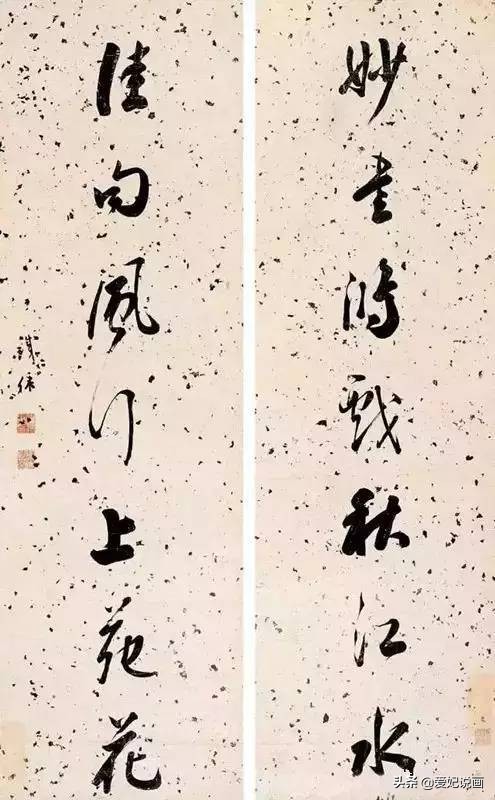 妙書鴻戲秋江水
佳句風行上苑花
鐵保
头条 @爱妃说画